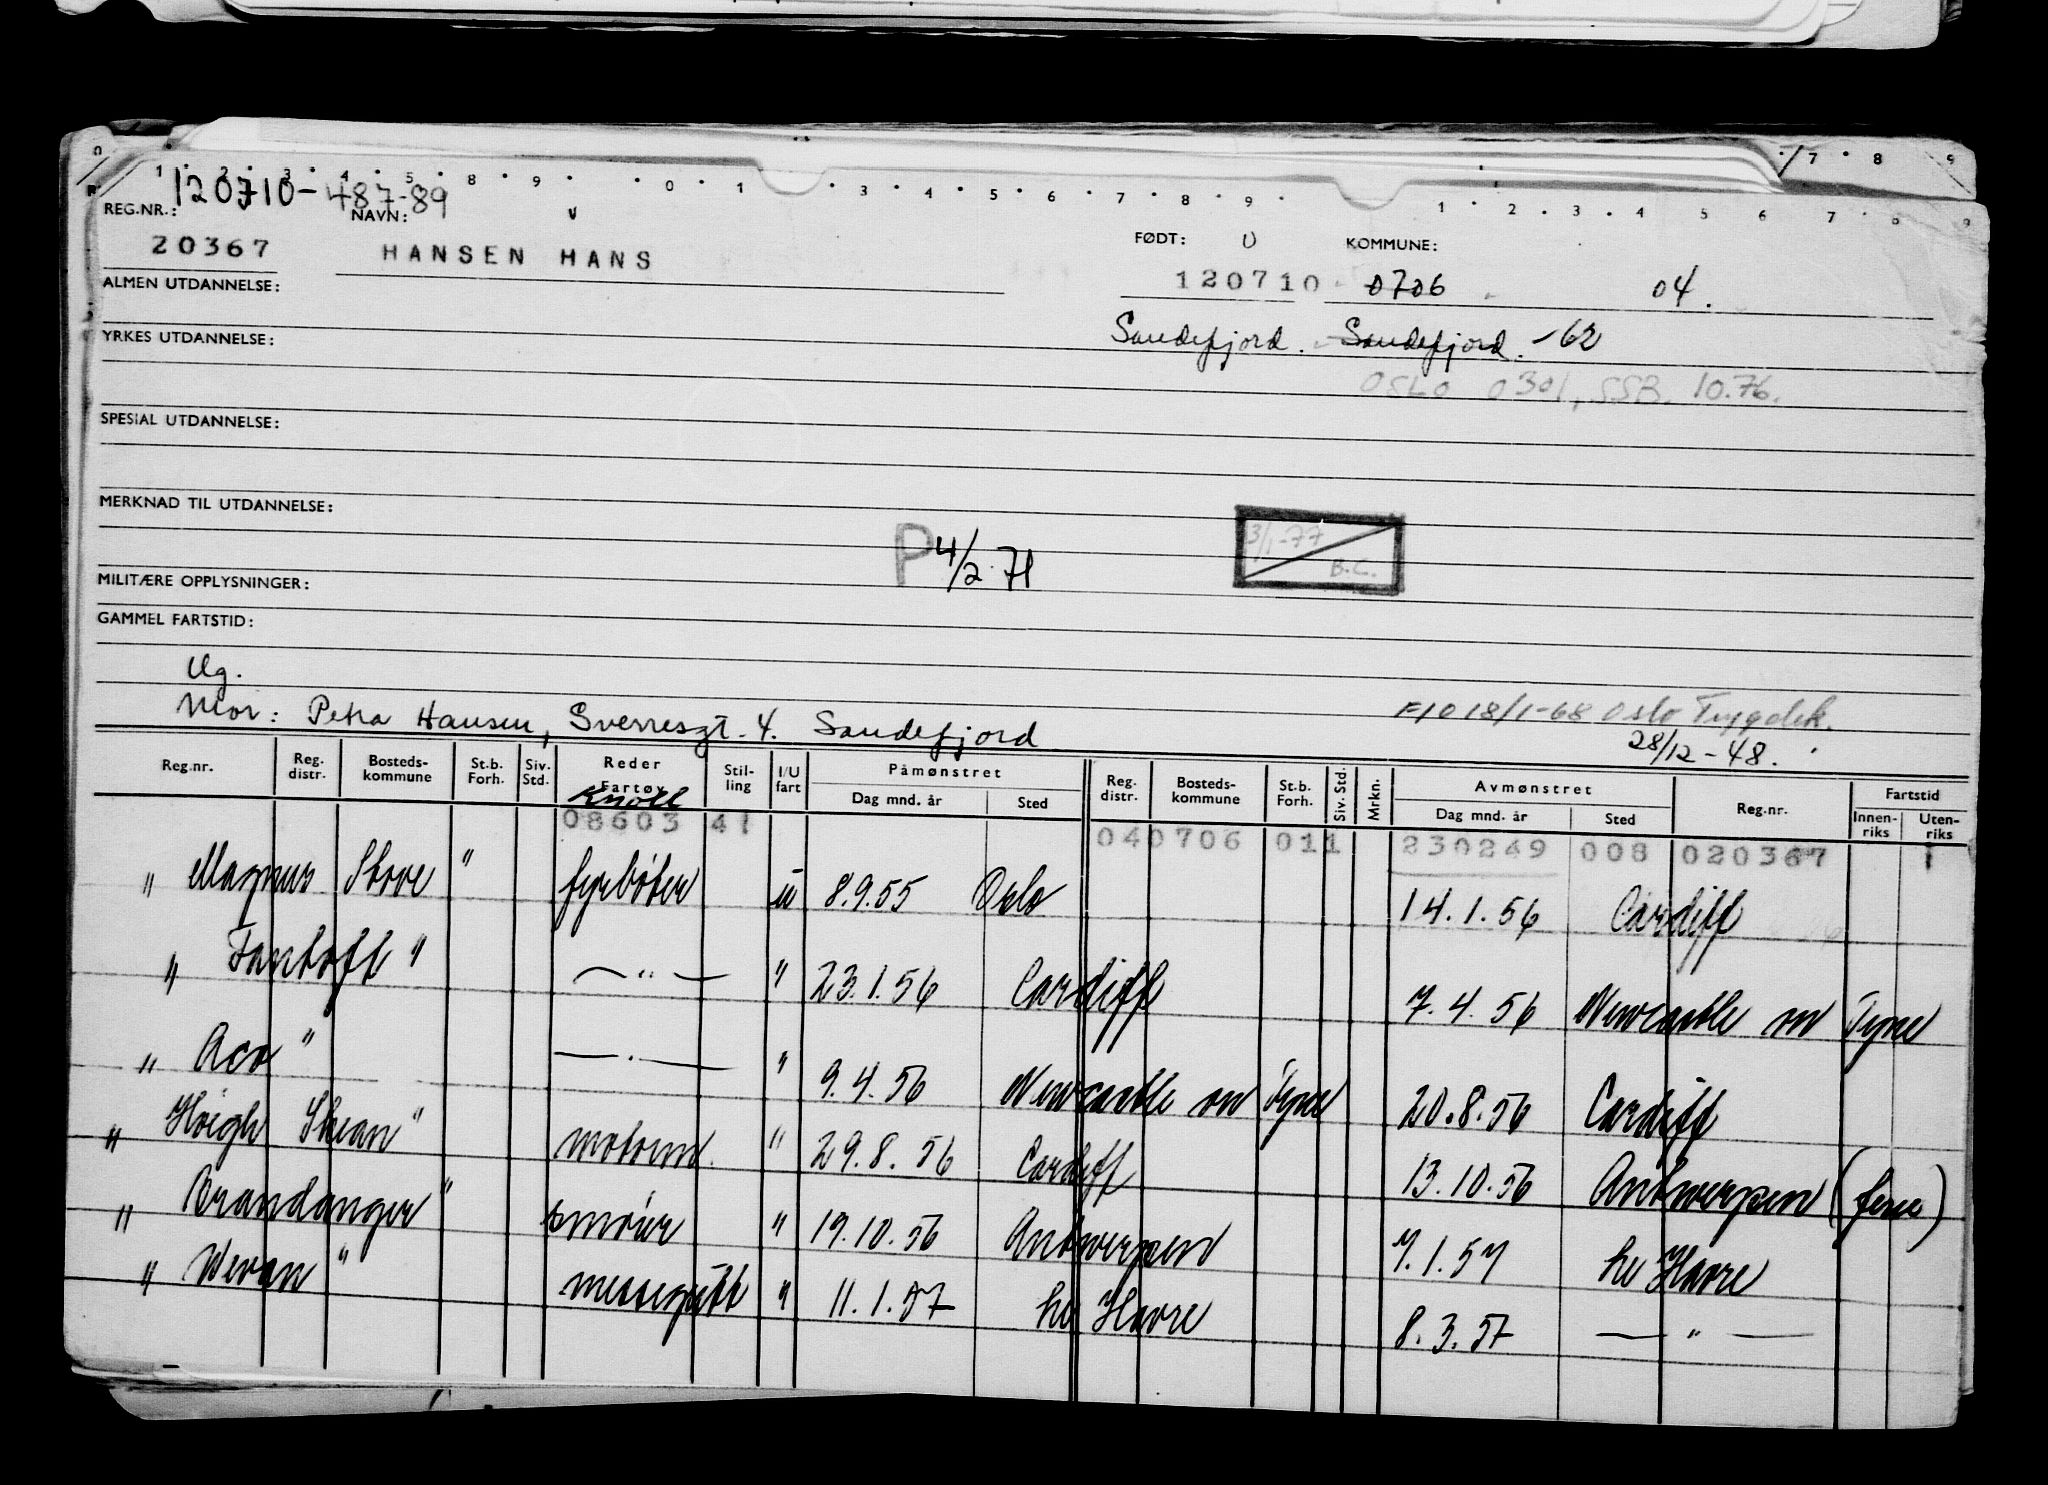 120710-487-89
REG.NR.: NAVN: FØDT: U KOMMUNE:
20367 HANSEN HANS 120710 0706 04.
ALMEN UTDANNELSE:
Sandefjord. Sandefjord. -62
YRKES UTDANNELSE:
OSLO 0301, SSB. 10.76.
SPESIAL UTDANNELSE:
MERKNAD TIL UTDANNELSE:
P 4/2 71 3/1-77 B.C.
MILITÆRE OPPLYSNINGER:
GAMMEL FARTSTID:
Ug.
Mor: Petra Hansen, Sverresgt. 4. Sandefjord
F10 18/1-68 Oslo Trygdek.
28/12-48.
Reg.nr. Reg. distr. Bosteds-kommune St.b. Forh. Siv. Std. Reder Fartøy Stil-ling I/U fart Påmønstret Dag mnd. år Sted Reg. distr. Bosteds-kommune St.b. Forh. Siv. Std. Mrkn. Avmønstret Dag mnd. år Sted Reg.nr. Fartstid Innen-riks Uten-riks
Knoll
08603 41 040706 011 230249 008 020367 1
" Magnus Stove " fyrbøter u 8.9.55 Oslo 14.1.56 Cardiff
" Fantoft " — " — " 23.1.56 Cardiff 7.4.56 Newcastle on Tyne
" Aco " — . — " 9.4.56 Newcastle on Tyne 20.8.56 Cardiff
" Høegh Skean " motorm. " 29.8.56 Cardiff 13.10.56 Antwerpen (ferie)
" Brandanger " smører " 19.10.56 Antwerpen 7.1.57 Le Havre
" Nevan " messegutt " 11.1.57 Le Havre 8.3.57 — " —